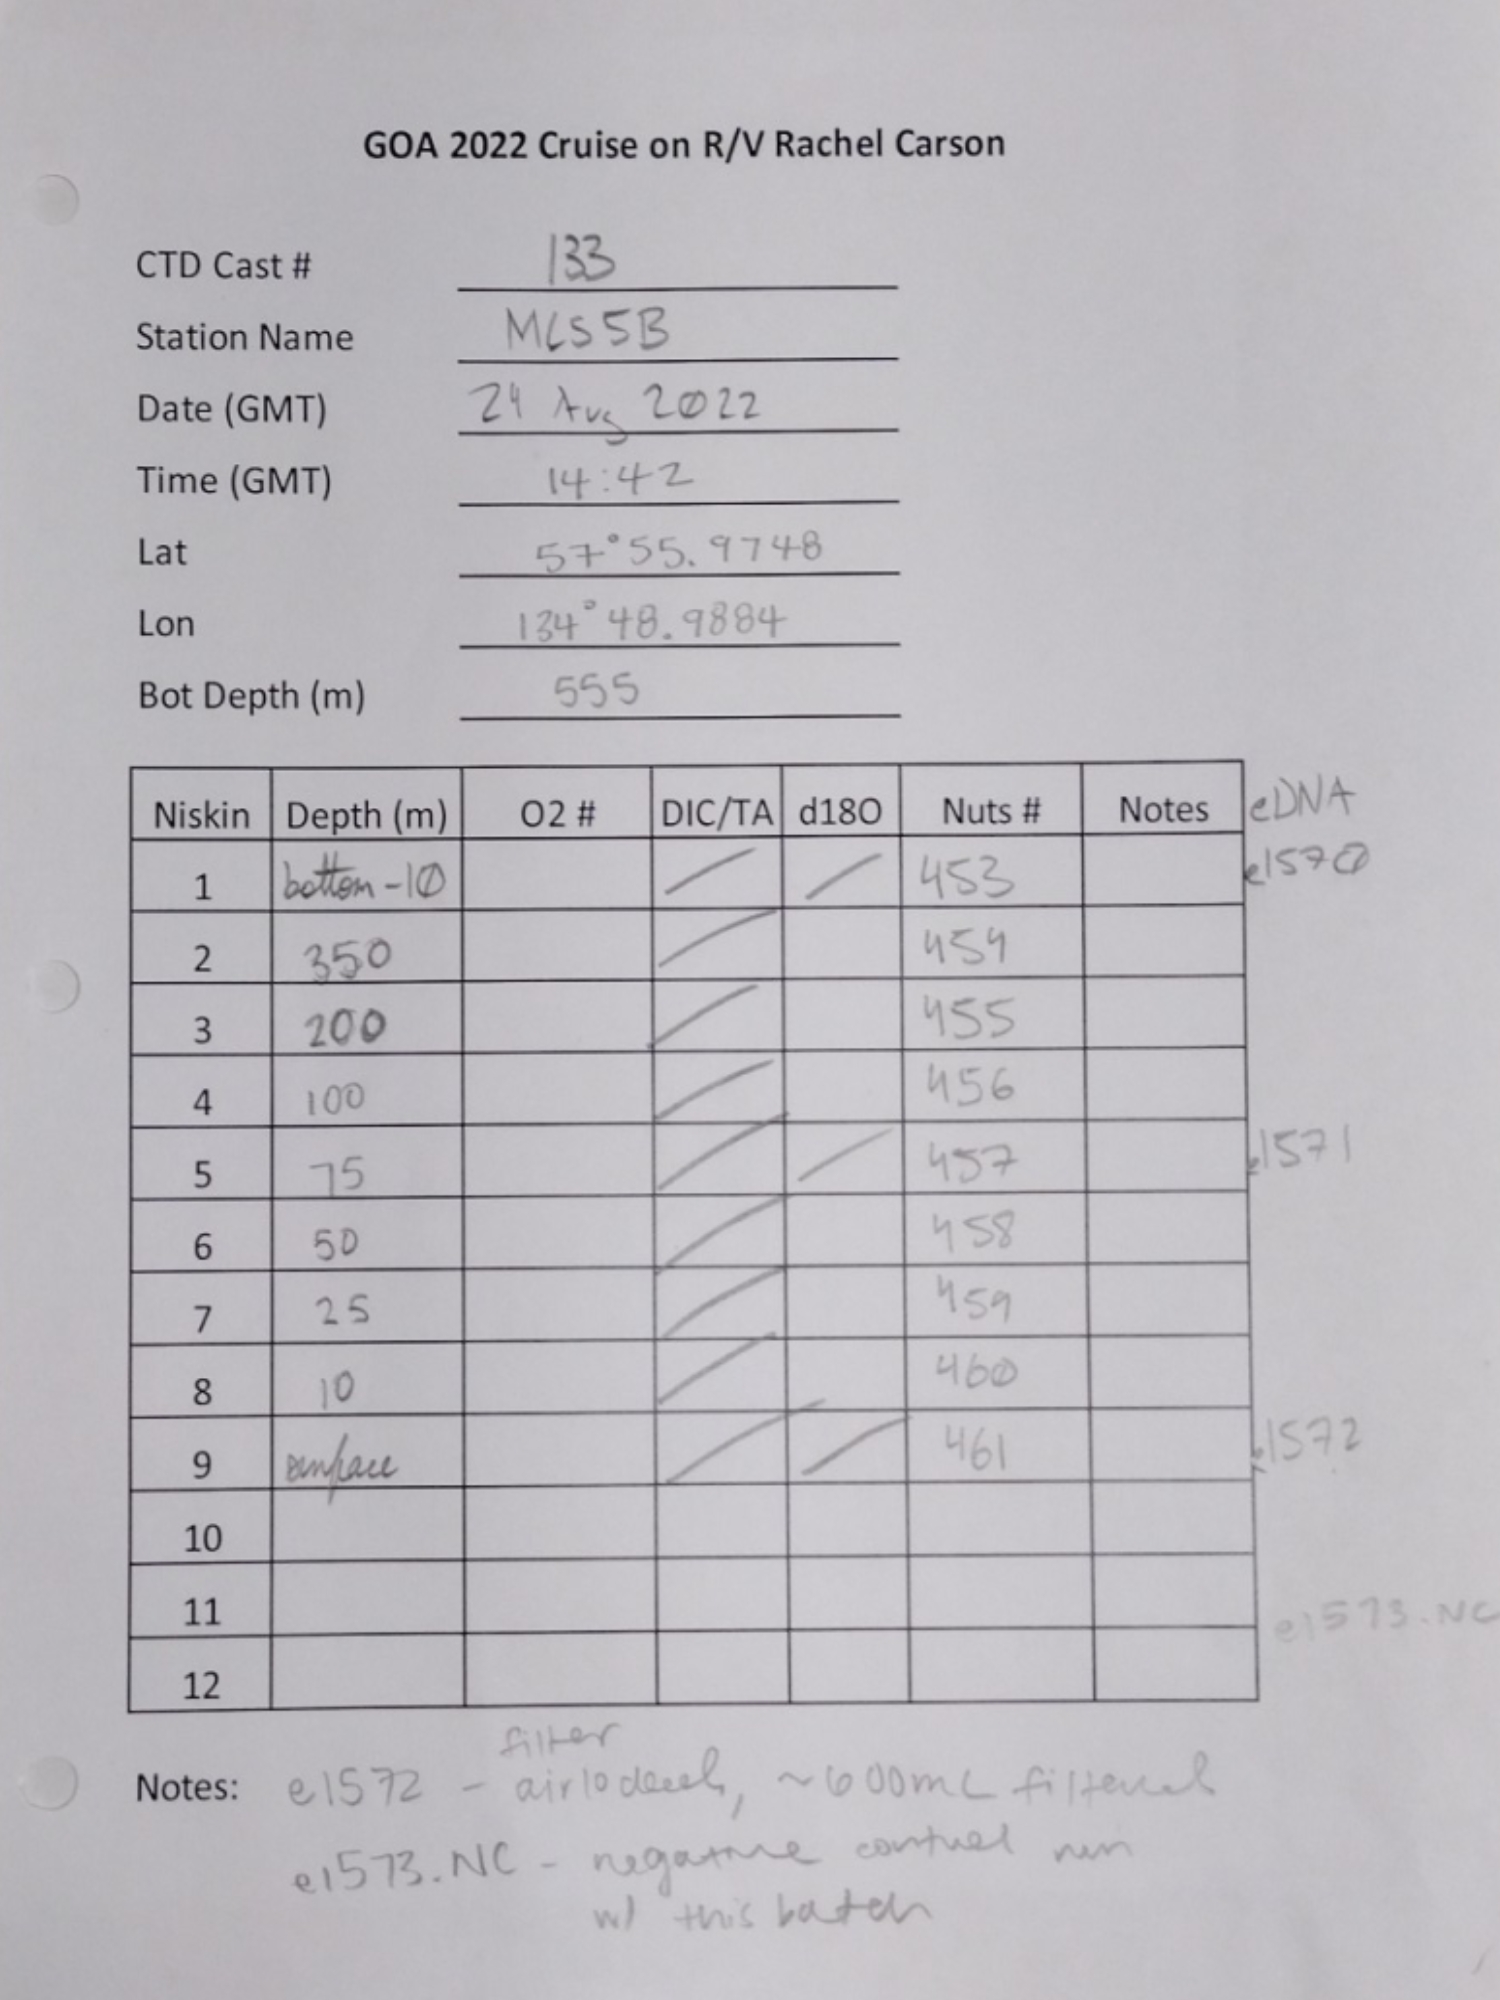 GOA 2022 Cruise on R/V Rachel Carson
CTD Cast # 133
Station Name MLS5B
Date (GMT) 24 Aug 2022
Time (GMT) 14:42
Lat 57°55.9748
Lon 134°48.9884
Bot Depth (m) 555
Niskin Depth (m) O2 # DIC/TA d18O Nuts # Notes eDNA
1 bottom -10 / / 453 e1570
2 350 / 454
3 200 / 455
4 100 / 456
5 75 / / 457 e1571
6 50 / 458
7 25 / 459
8 10 / 460
9 surface / / 461 e1572
10
11 e1573.NC
12
filter
Notes: e1572 - airlocked, ~600mL filtered
e1573.NC - negative control run
w/ this batch